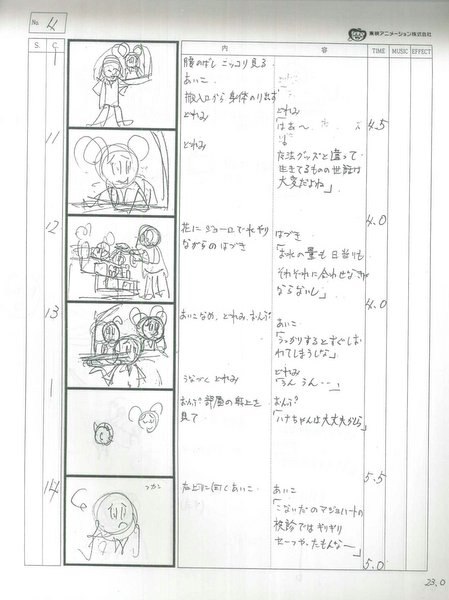 No. 4
東映アニメーション株式会社
S. C. 内 容 TIME MUSIC EFFECT
膝のばし ニッコリ見る
あいこ
搬入口から身体のり出す
どれみ
どれみ
「はあ〜
な法グッズと違って
生きてるものの世話は
大変だよね」
4.5
11
どれみ
4.0
12
花にジョーロで水やり
ながらのはづき
はづき
「お水の量も日当りも
それぞれに合わせなきゃ
ならないし」
4.0
13
あいこなめ、どれみ、おんぷ
あいこ
「うっかりするとすぐしお
れてしまうしな」
うなづく どれみ
どれみ
「うん うん…」
おんぷ 部屋の
見て
おんぷ
「ハナちゃんは大丈夫かしら」
5.5
14
あいこ
あいこ
「こないだのマジョハートの
検診ではギリギリ
セーフやったもんなー」
5.0
23.0